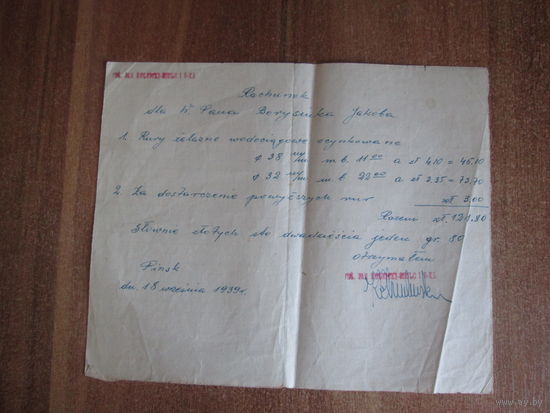 Rachunek
dla W. Pana Boryszuka Jakoba
1. Rury żelazne wodociągowe ocynkowane
φ 38 m/m m.b. 11.00 a zł 4.10 = 45.10
φ 32 m/m m.b. 22.00 a zł 3.35 = 73.70
2. Za dostarczenie powyższych rur zł 3.00
Razem zł. 121.80
Słownie złotych sto dwadzieścia jeden gr. 80
otrzymałem
Pińsk
dn. 18 września 1939 r.
ay.by